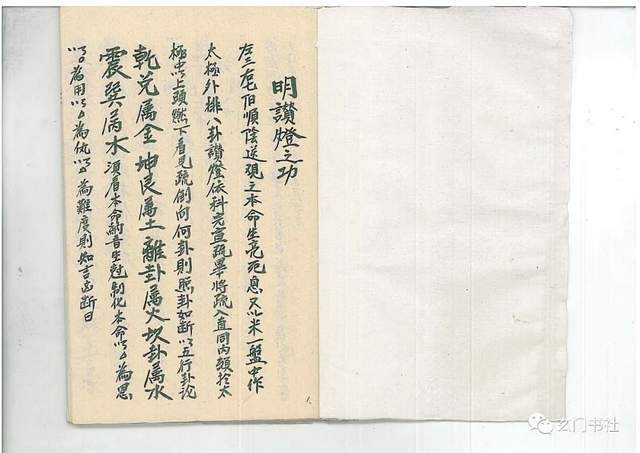 明讃燈之功
左三右七伯順陰送現之本命生亮死息又以米一盤中作
太極外排八卦讃燈依科完宣疏畢將疏入直同內頭於太
極中以上頭燃下看見疏倒向何卦則照卦如斷以五行卦論
乾兌属金坤艮属土離卦属火坎卦属水
震巽属木須看本命納音生尅制化本命以為恩
以為用以為仇以為難度則知吉凶断日
玄门书社